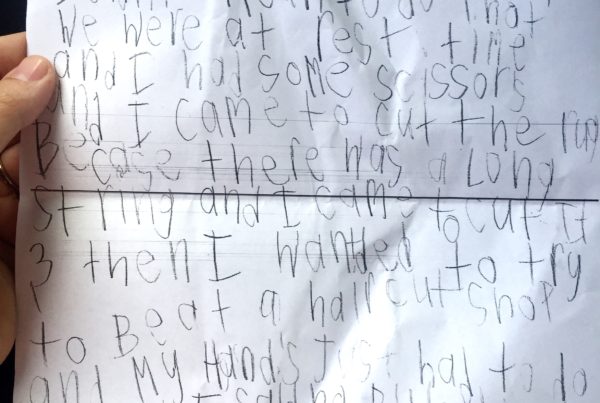 We were at rest time
and I had some scissors
and I came to cut the rug
Becase there was a long
string and I came to cut it
3 then I wanted to try
to Be at a haircut shop
and My Hands just had to do